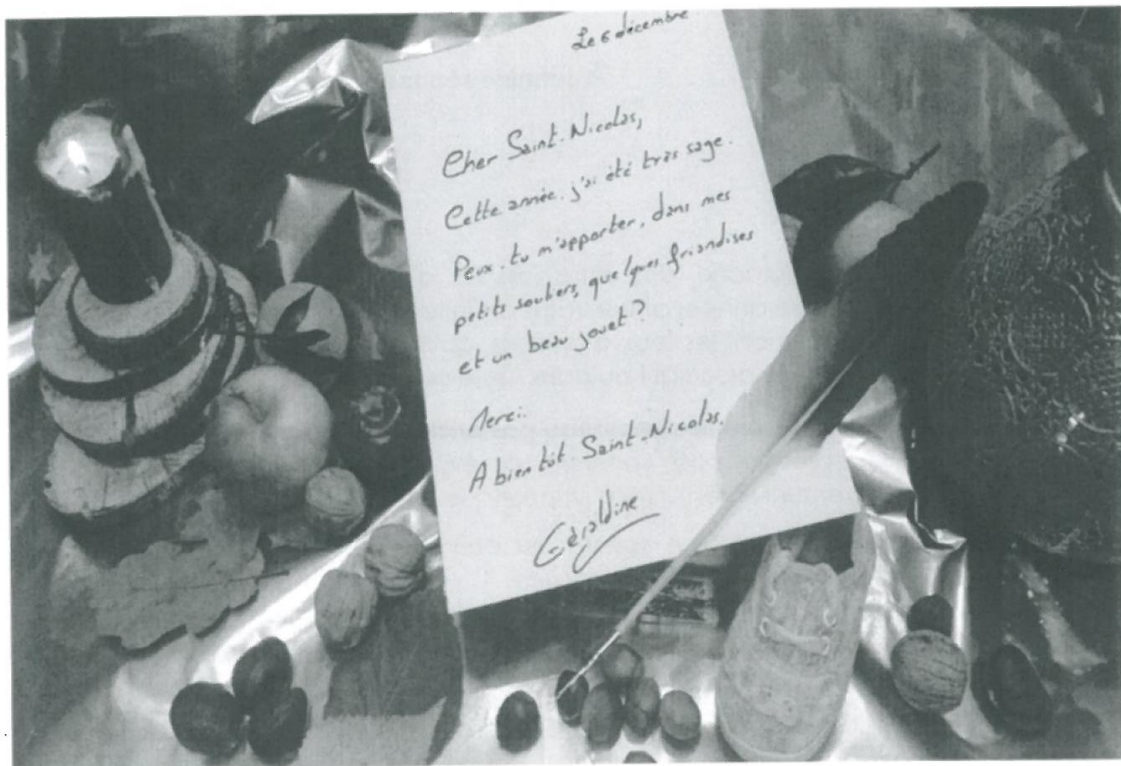 Le 6 décembre
Cher Saint-Nicolas,
Cette année, j'ai été très sage.
Peux-tu m'apporter, dans mes
petits souliers, quelques friandises
et un beau jouet?
Merci.
A bientôt Saint-Nicolas.
Géraldine